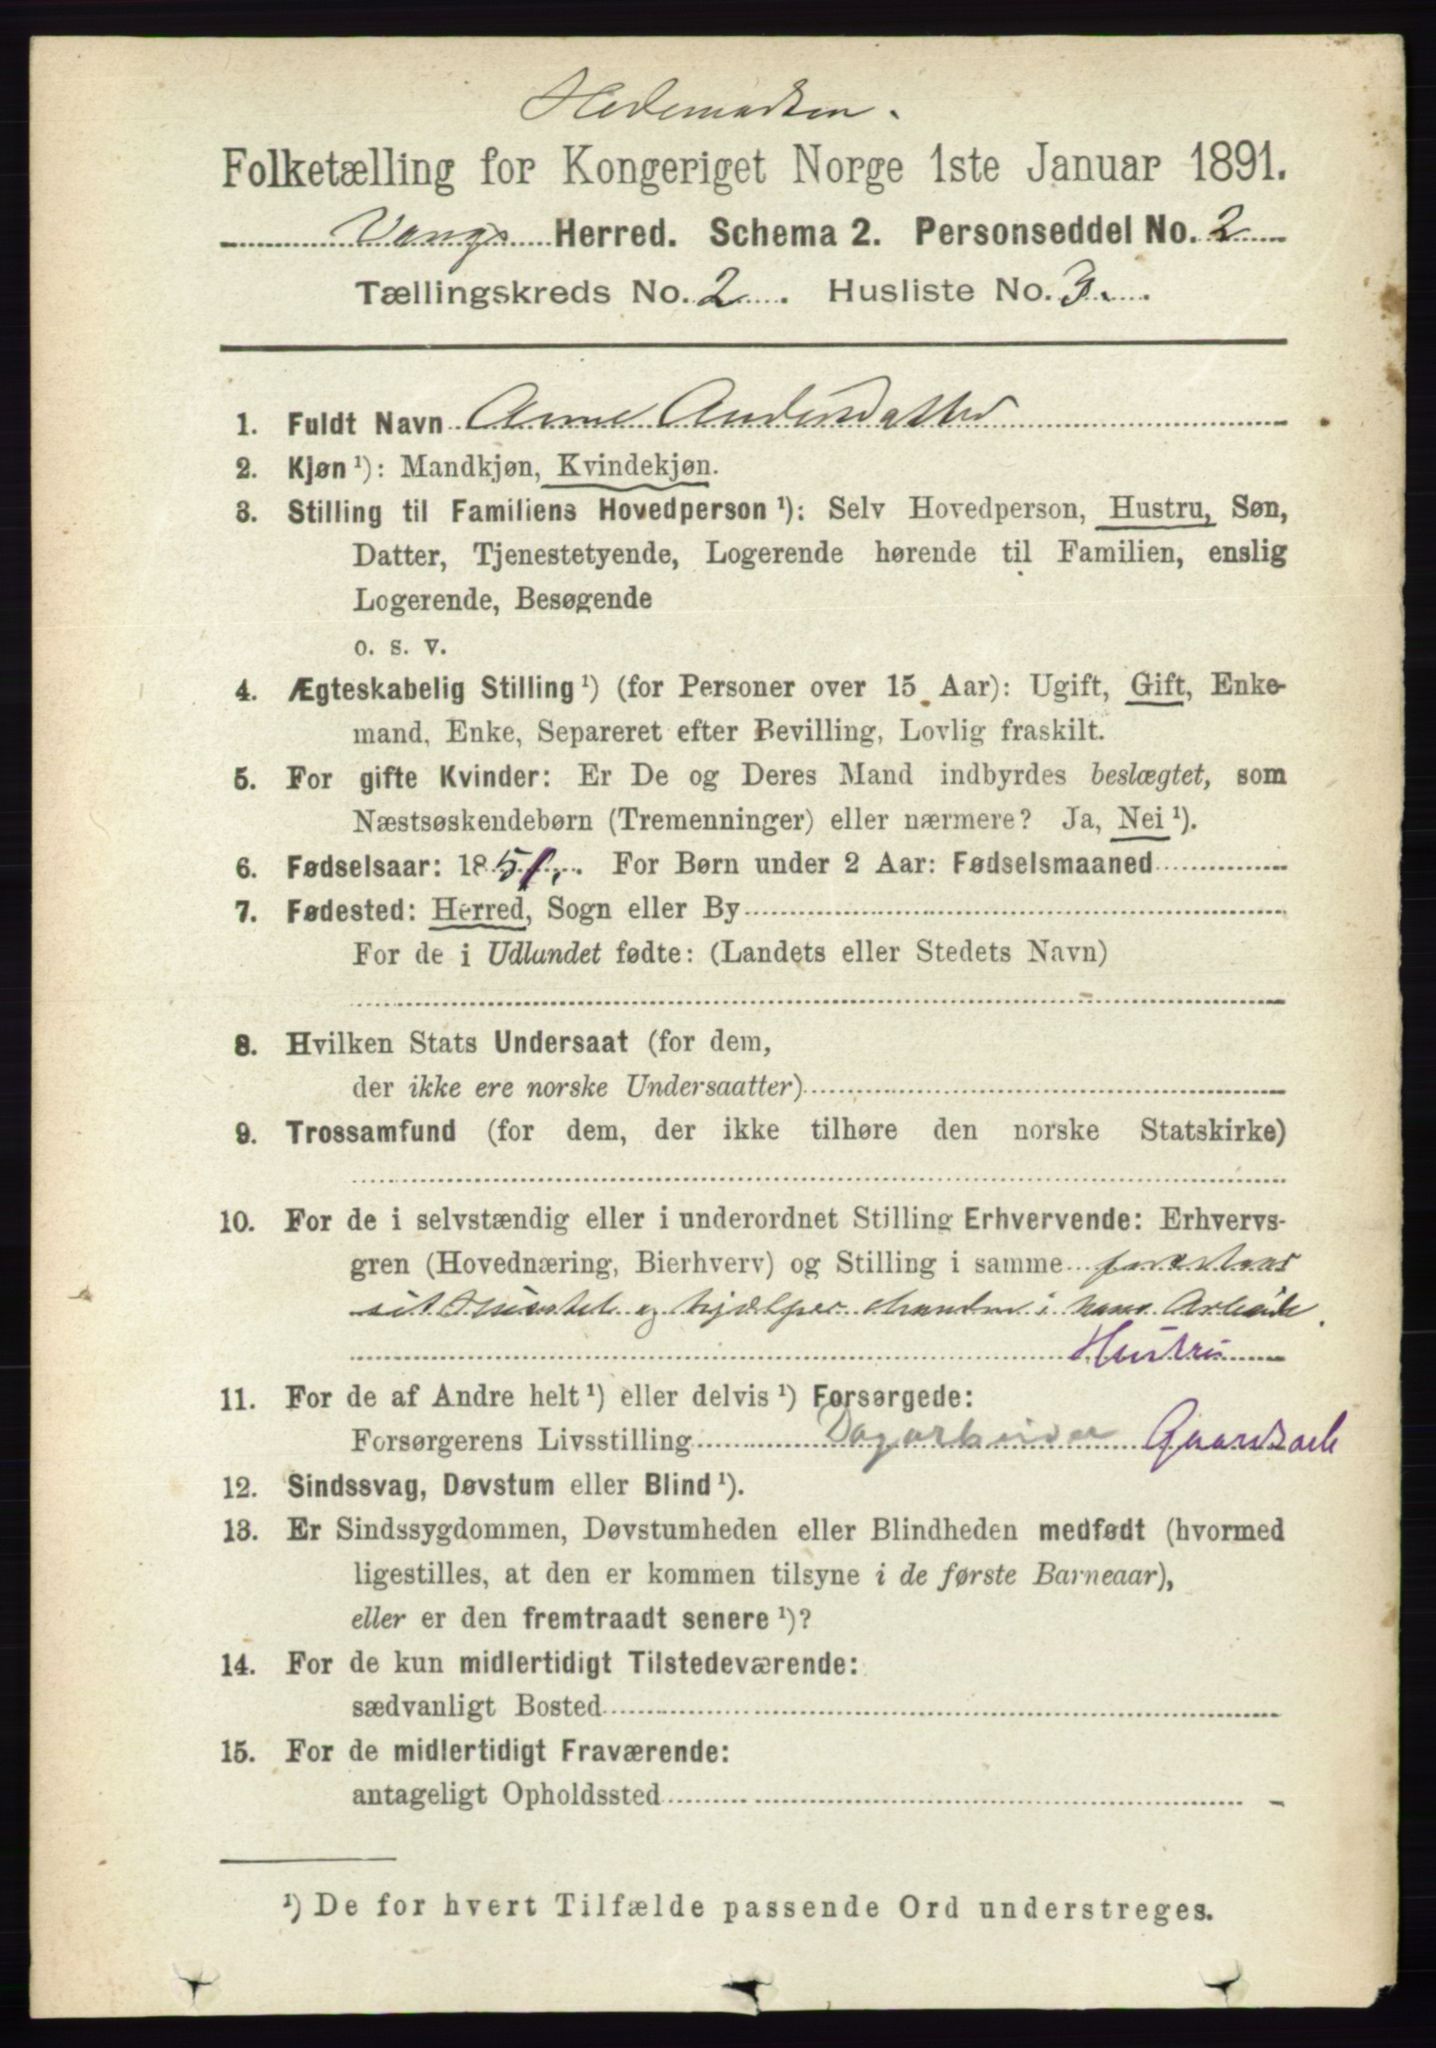 Hedemarken.
Folketælling for Kongeriget Norge 1ste Januar 1891.
Vangs Herred. Schema 2. Personseddel No. 2
Tællingskreds No. 2. Husliste No. 3.
1. Fuldt Navn Anne Andersdatter
2. Kjøn ¹): Mandkjøn, Kvindekjøn.
3. Stilling til Familiens Hovedperson ¹): Selv Hovedperson, Hustru, Søn,
Datter, Tjenestetyende, Logerende hørende til Familien, enslig
Logerende, Besøgende
o. s. v.
4. Ægteskabelig Stilling ¹) (for Personer over 15 Aar): Ugift, Gift, Enke-
mand, Enke, Separeret efter Bevilling, Lovlig fraskilt.
5. For gifte Kvinder: Er De og Deres Mand indbyrdes beslægtet, som
Næstsøskendebørn (Tremenninger) eller nærmere? Ja, Nei ¹).
6. Fødselsaar: 1851. For Børn under 2 Aar: Fødselsmaaned
7. Fødested: Herred, Sogn eller By
For de i Udlandet fødte: (Landets eller Stedets Navn)
8. Hvilken Stats Undersaat (for dem,
der ikke ere norske Undersaatter)
9. Trossamfund (for dem, der ikke tilhøre den norske Statskirke)
10. For de i selvstændig eller i underordnet Stilling Erhvervende: Erhvervs-
gren (Hovednæring, Bierhverv) og Stilling i samme forestaar
sit Huusstel og hjælper Manden i hans Arbeide.
Hustru
11. For de af Andre helt ¹) eller delvis ¹) Forsørgede:
Forsørgerens Livsstilling Dagarbeider Gaardsarb
12. Sindssvag, Døvstum eller Blind ¹).
13. Er Sindssygdommen, Døvstumheden eller Blindheden medfødt (hvormed
ligestilles, at den er kommen tilsyne i de første Barneaar),
eller er den fremtraadt senere ¹)?
14. For de kun midlertidigt Tilstedeværende:
sædvanligt Bosted
15. For de midlertidigt Fraværende:
antageligt Opholdssted
¹) De for hvert Tilfælde passende Ord understreges.